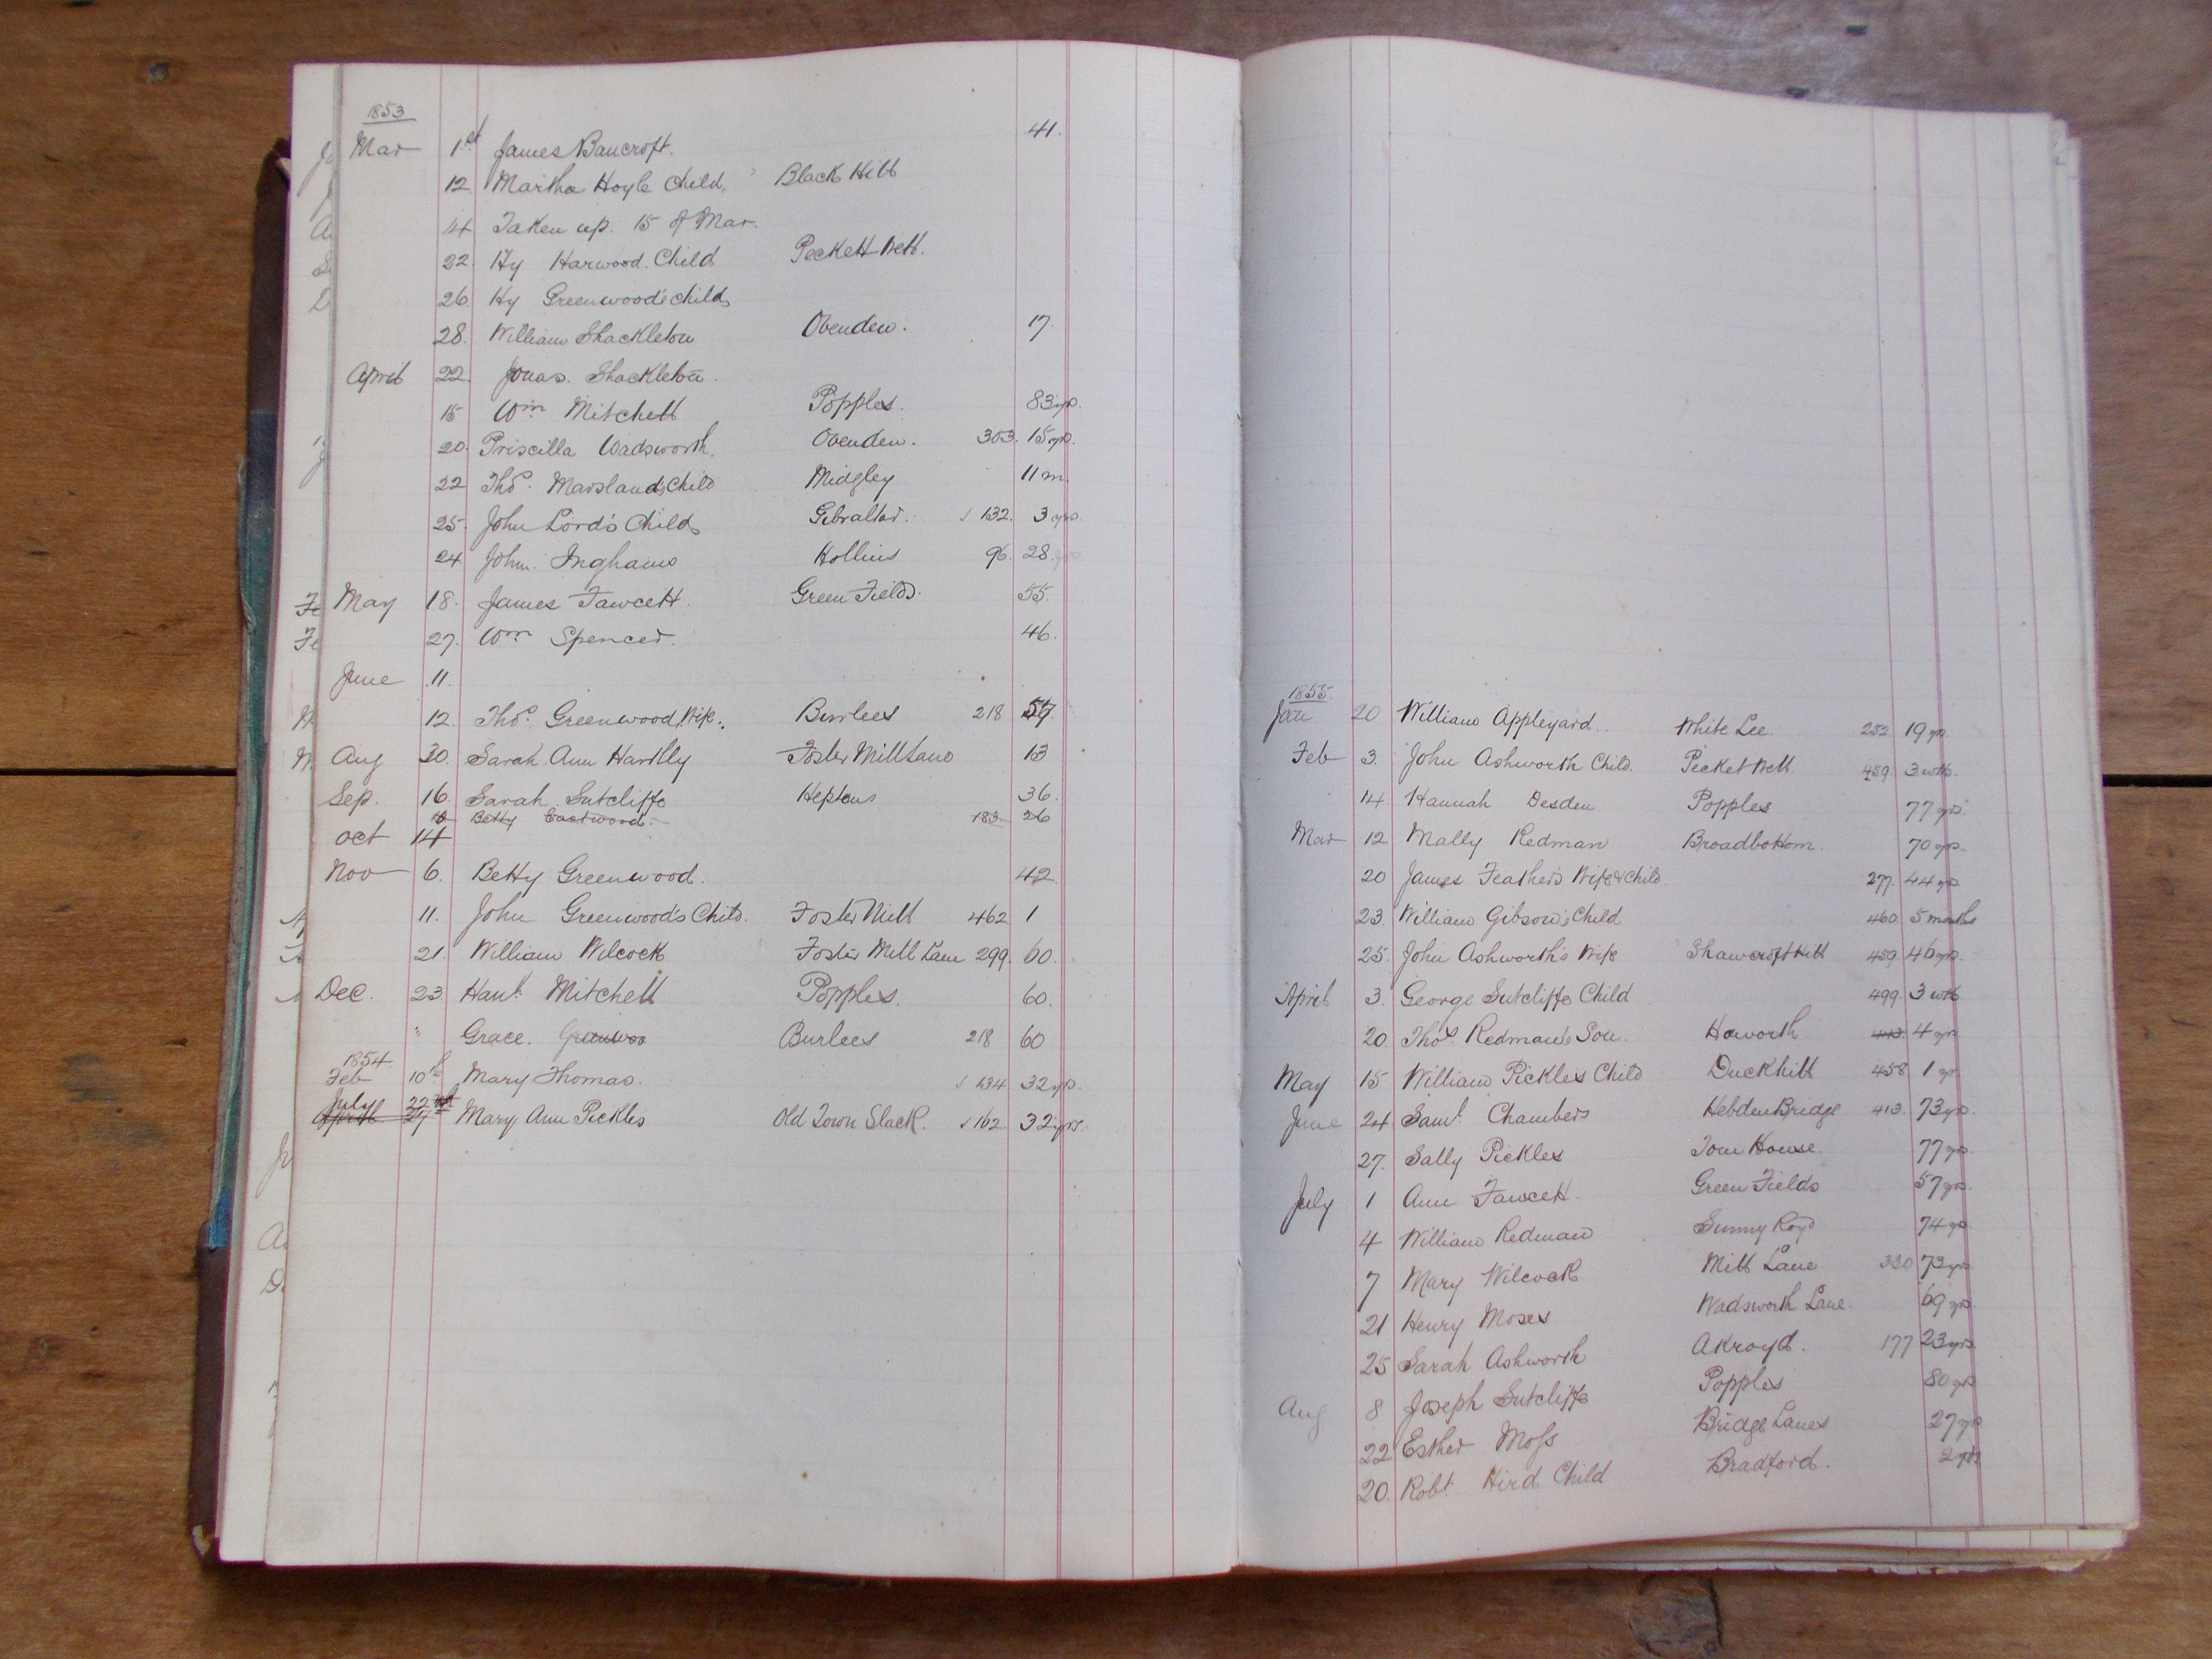 1853
Mar 1st James Bancroft. 41.
12 Martha Hoyle Child, Black Hill
14 Taken up. 15 of Mar.
22. Hy Harwood. Child Peckett Well.
26. Hy Greenwood's Child
28. William Shackleton Ovenden. 17.
April 22. Jonas. Shackleton.
15 Wm Mitchell Popples. 83 yrs.
20. Priscilla Wadsworth. Ovenden. 303. 15 yrs.
22 Thos. Marsland's Child Midgley 11 m.
25. John Lord's Child Gibraltar. 132. 3 yrs
24 John. Inghams Hollins 96. 28.
May 18. James Fawcett. Green Fields. 55.
27. Wm Spencer. 46.
June 11.
12. Thos. Greenwood, Wife. Burlees 218
Aug 30. Sarah Ann Hartley Foster Mill Lane 13
Sep. 16. Sarah Sutcliffe Heptons 36.
Betty Eastwood. 183 26
Oct 14
Nov 6. Betty Greenwood. 42
11. John Greenwood's Child. Foster Mill 462 1
21. William Wilcock Foster Mill Lane 299. 60.
Dec. 23 Hanh Mitchell Popples. 60.
" Grace. Greenwoo Burlees 218 60
1854
Feb 10th Mary Thomas. 134 32 yrs.
July 22nd
April 27 Mary Ann Pickles Old Town Slack. 162 32 yrs.
1855.
Jan 20 William Appleyard. White Lee. 252 19 yrs
Feb 3. John Ashworth Child. Pecket Well 459 3 wks.
14. Hannah Desden Popples 77 yrs.
Mar 12 Mally Redman Broadbottom. 70 yrs.
20 James Feather's Wife & Child. 277. 44 yrs
23. William Gibson's Child 460 5 months
25. John Ashworth's Wife Shawcroft Hill 459 46 yrs.
April 3. George Sutcliffe Child 499. 3 wks
20. Thos Redman's Son. Haworth 413 4 yrs
May 15 William Pickles Child Duckhill 458 1 yr
June 24 Saml. Chambers Hebden Bridge 413. 73 yrs.
27. Sally Pickles Tom House. 77 yrs.
July 1 Ann Fawcett. Green Fields 57 yrs.
4 William Redman Sunny Royd 74 yrs
7 Mary Wilcock Mill Lane 330 73 yrs
21 Henry Moses Wadsworth Lane. 69 yrs.
25 Sarah Ashworth Akroyd. 177 23 yrs
Aug 8 Joseph Sutcliffe Popples 80 yrs
22 Esther Moss Bridge Lanes 27 yrs
20. Robt. Hird Child Bradford. 2 yrs